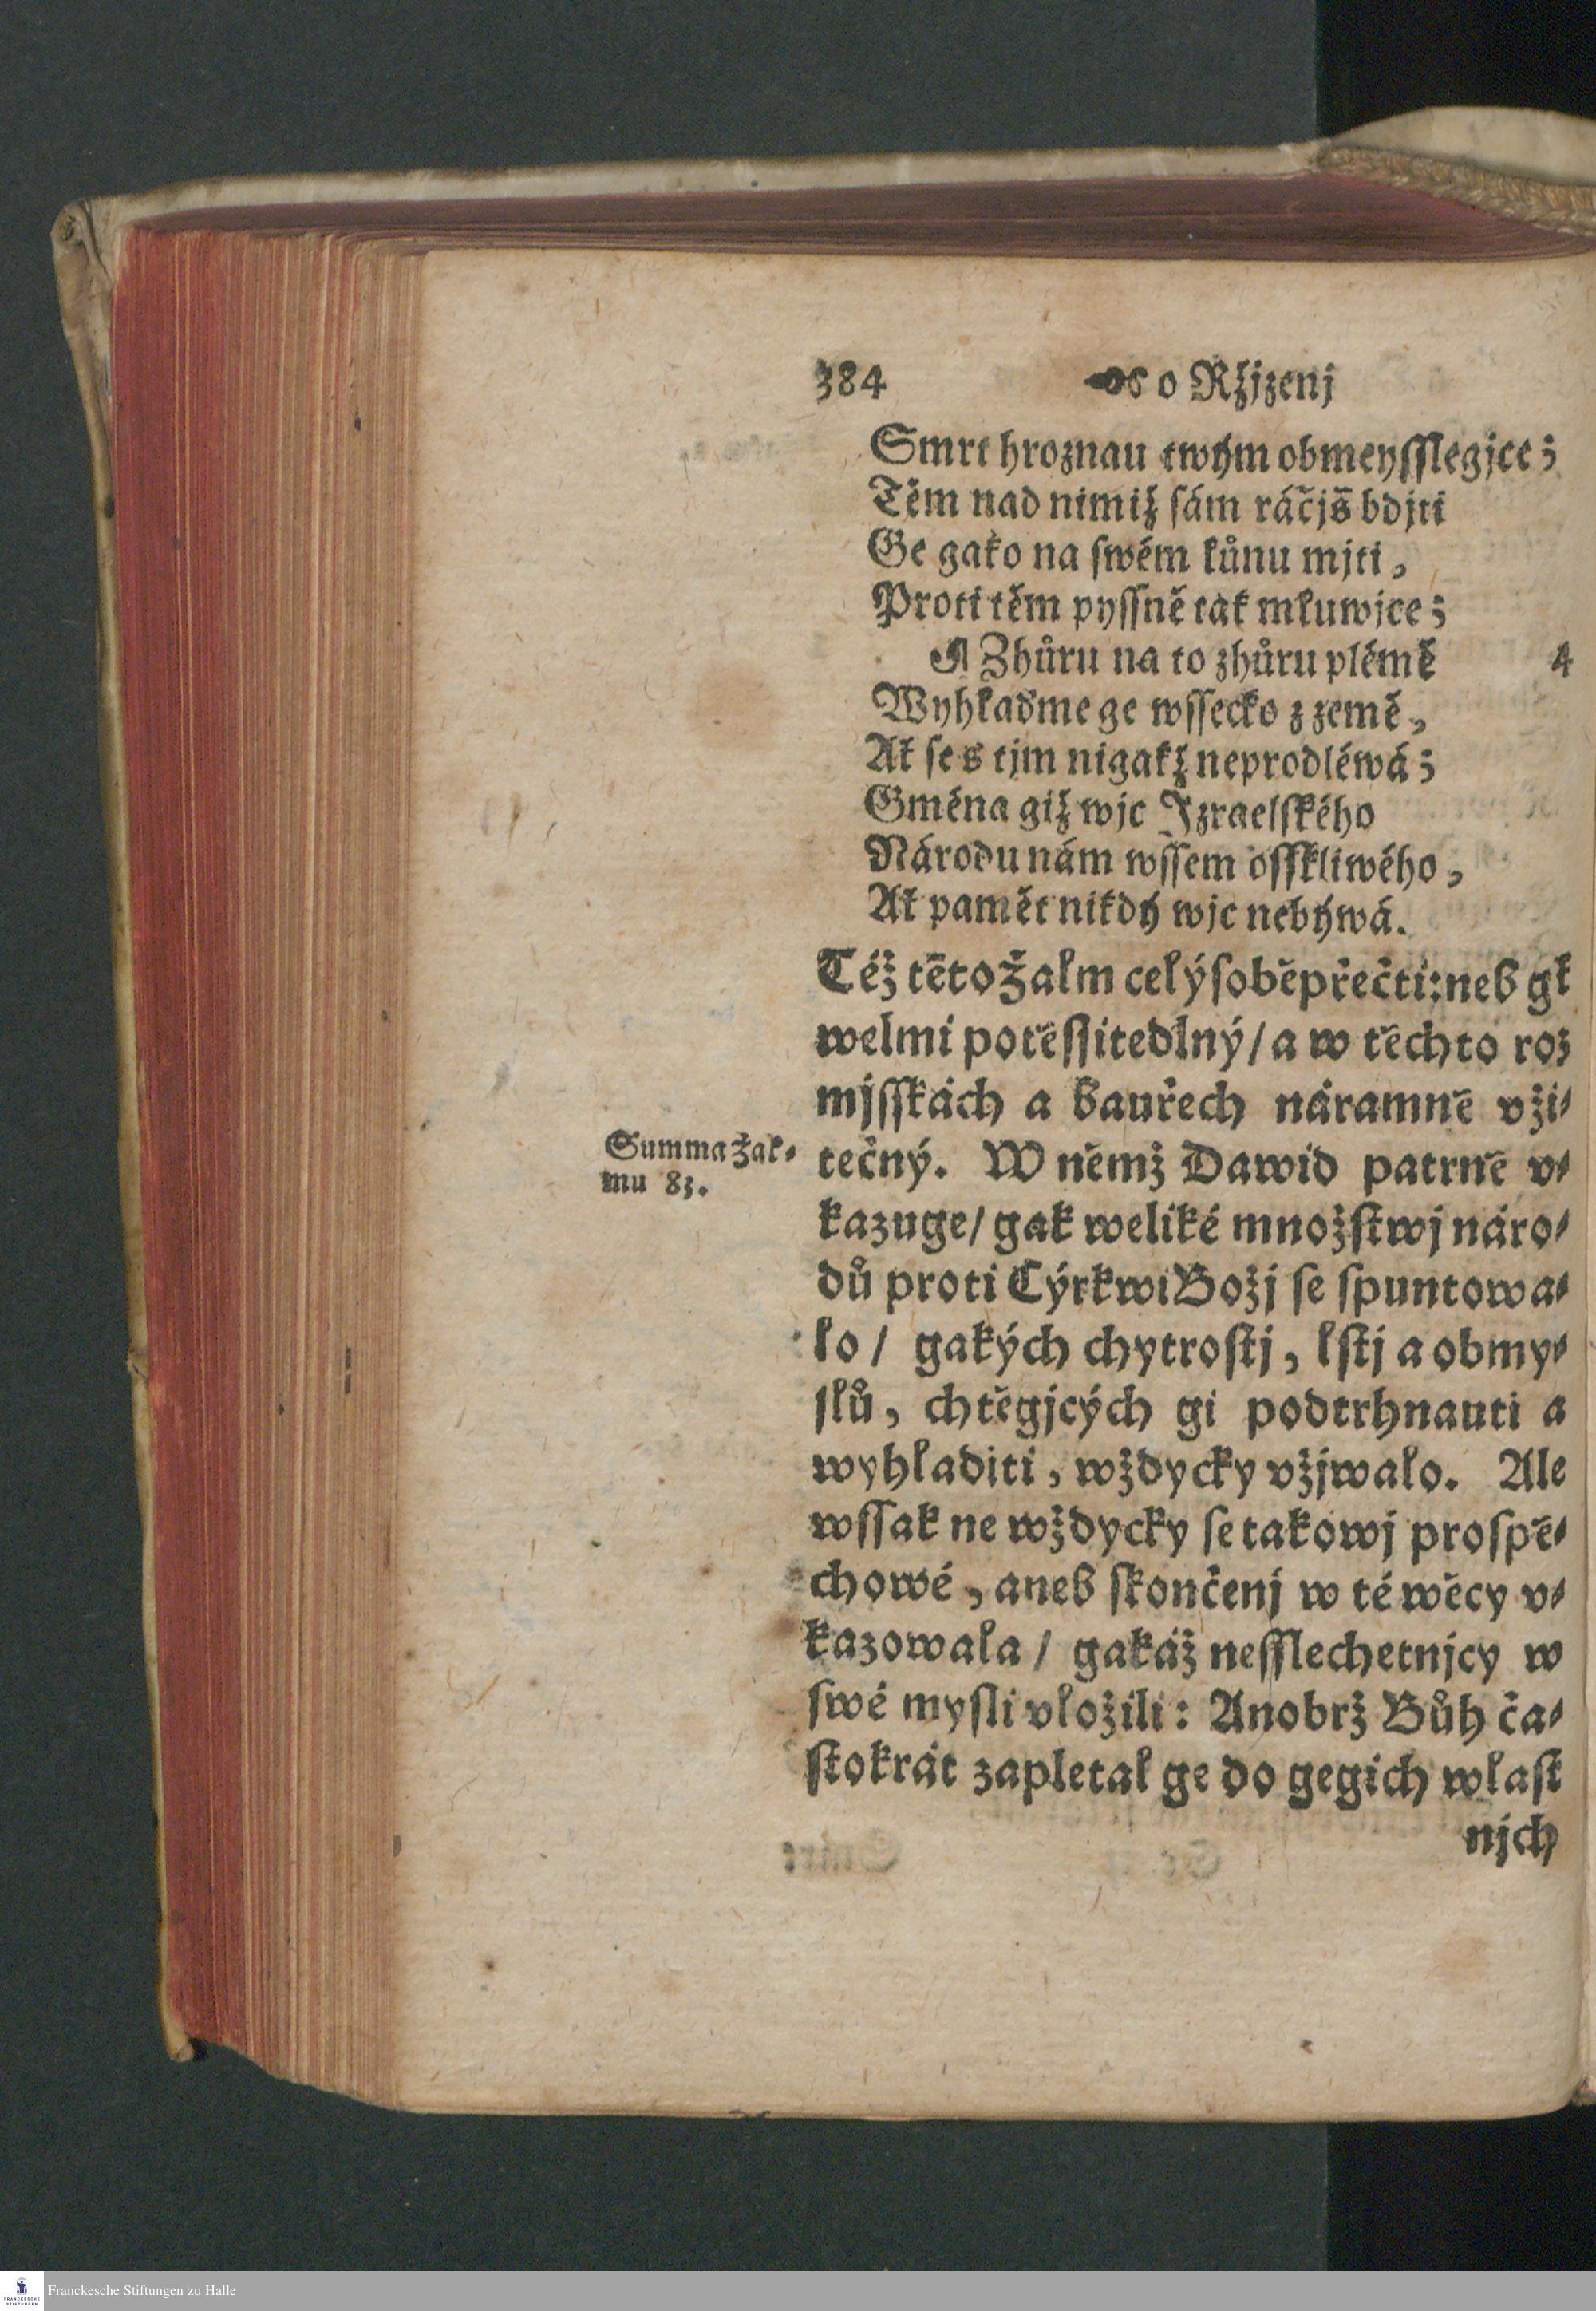 384 o Ržjzenj
Smrt hroznau twým obmeyſſlegjce;
Těm nad nimiž ſám ráčjš bdjti
Ge gako na ſwém lůnu mjti,
Proti těm pyſſně tak mluwjce;
¶ Zhůru na to zhůru plémě 4
Wyhlaďme ge wſſecko z země,
Ať ſe s tjm nigakž neprodléwá;
Gména giž wjc Izraelſkého
Národu nám wſſem oſſkliwého,
Ať pamět nikdý wjc nebýwá.
Též tēto Žalm celý ſobě přečti: neb gt
welmi potěſſitedlný/ a w těchto roz
mjſſkách a bauřech náramně vži-
tečný. W němž Dawid patrně v-
kazuge/ gak weliké množſtwj náro-
dů proti Cýrkwi Božj ſe ſpuntowa-
lo/ gakých chytroſtj, lſtj a obmy-
ſlů, chtěgjcých gi podtrhnauti a
wyhladiti, wždycky vžjwalo. Ale
wſſak ne wždycky ſe takowj proſpě-
chowé, aneb ſkončenj w té wěcy v-
kazowala/ gakáž neſſlechetnjcy w
ſwé myſli vložili: Anobrž Bůh ča-
ſtokrát zapletal ge do gegich wlaſt
njch
Summa Žal-
mu 83.
Franckesche Stiftungen zu Halle